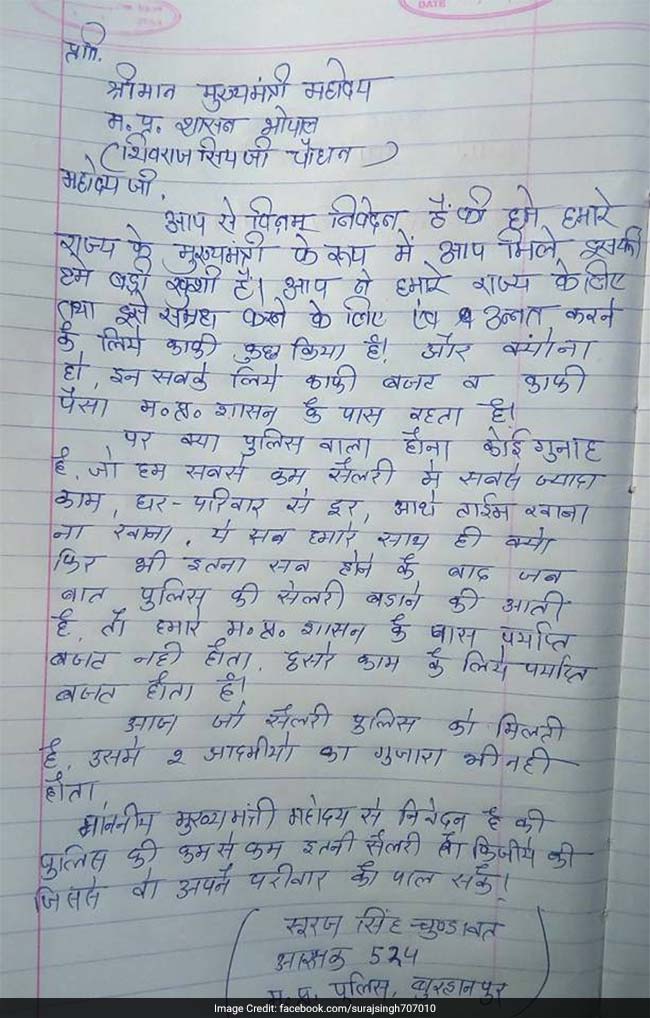 DATE
प्रति.
श्रीमान मुख्यमंत्री महोदय
म. प्र. शासन भोपाल
(शिवराज सिंघ जी चौहान)
महोदय जी,
आप से विनम्र निवेदन हैं की हमे हमारे
राज्य के मुख्यमंत्री के रूप में आप मिले, इसकी
हम बडी खुशी है। आप ने हमारे राज्य के लिए
तथा इसे समृध्द करने के लिए एंव उन्नत करने
के लिये काफी कुछ किया है। और क्यों ना
हो, इन सबके लिये काफी बजट व काफी
पैसा म.प्र. शासन के पास रहता है।
पर क्या पुलिस वाला होना कोई गुनाह
है, जो हम सबसे कम सैलरी मे सबसे ज्यादा
काम, घर-परिवार से दूर, आधे टाईम खाना
ना खाना, ये सब हमारे साथ ही क्यो
फिर भी इतना सब होने के बाद जब
बात पुलिस की सेलरी बडाने की आती
है, तो हमारे म.प्र. शासन के पास पर्याप्त
बजट नही होता, दुसरे काम के लिये पर्याप्त
बजट होता है।
आज जो सैलरी पुलिस को मिलती
है, उसमे २ आदमीयो का गुजारा भी नही
होता
माननीय मुख्यमंत्री महोदय से निवेदन है की
पुलिस की कम से कम इतनी सैलरी तो किजीये की
जिससे वो अपने परीवार को पाल सके।
(सूरज सिंह चुण्डावत
आरक्षक 524
म.प्र. पुलिस, बुरहानपुर)
Image Credit: facebook.com/surajsingh707010